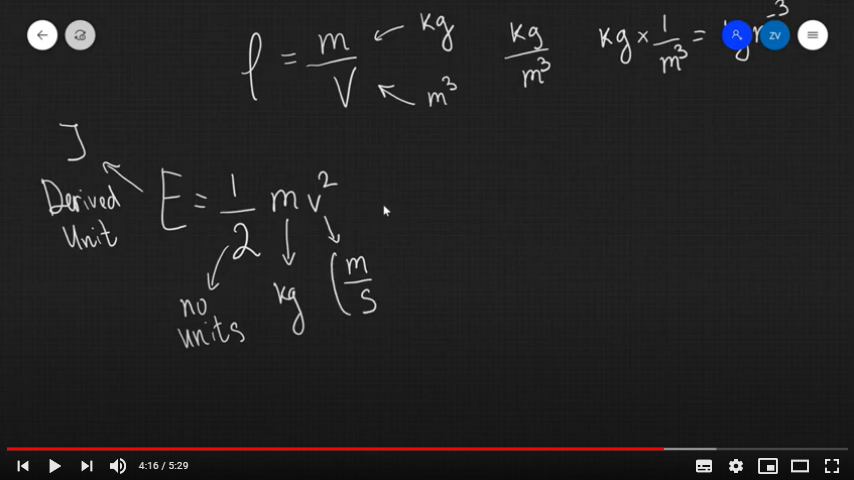 ρ = m/V
kg
m³
kg/m³
kg × 1/m³ =
J
Derived
Unit
E = 1/2 m v²
no
units
kg
(m/s
ZV
4:16 / 5:29